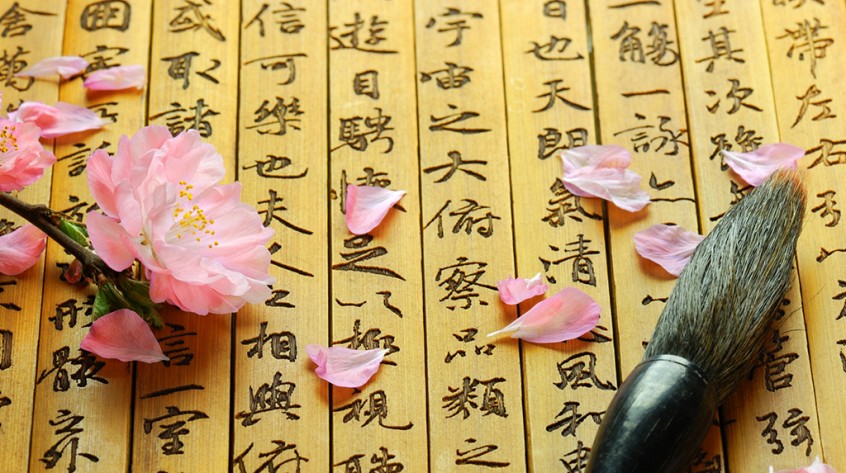 帶左右引
坐其次雖管弦
一觴一詠
日也天朗氣清風和
宇宙之大俯察品類之
遊目騁足以極視聽
信可樂也夫人之相與俯
或取諸言一室
形骸
舍萬